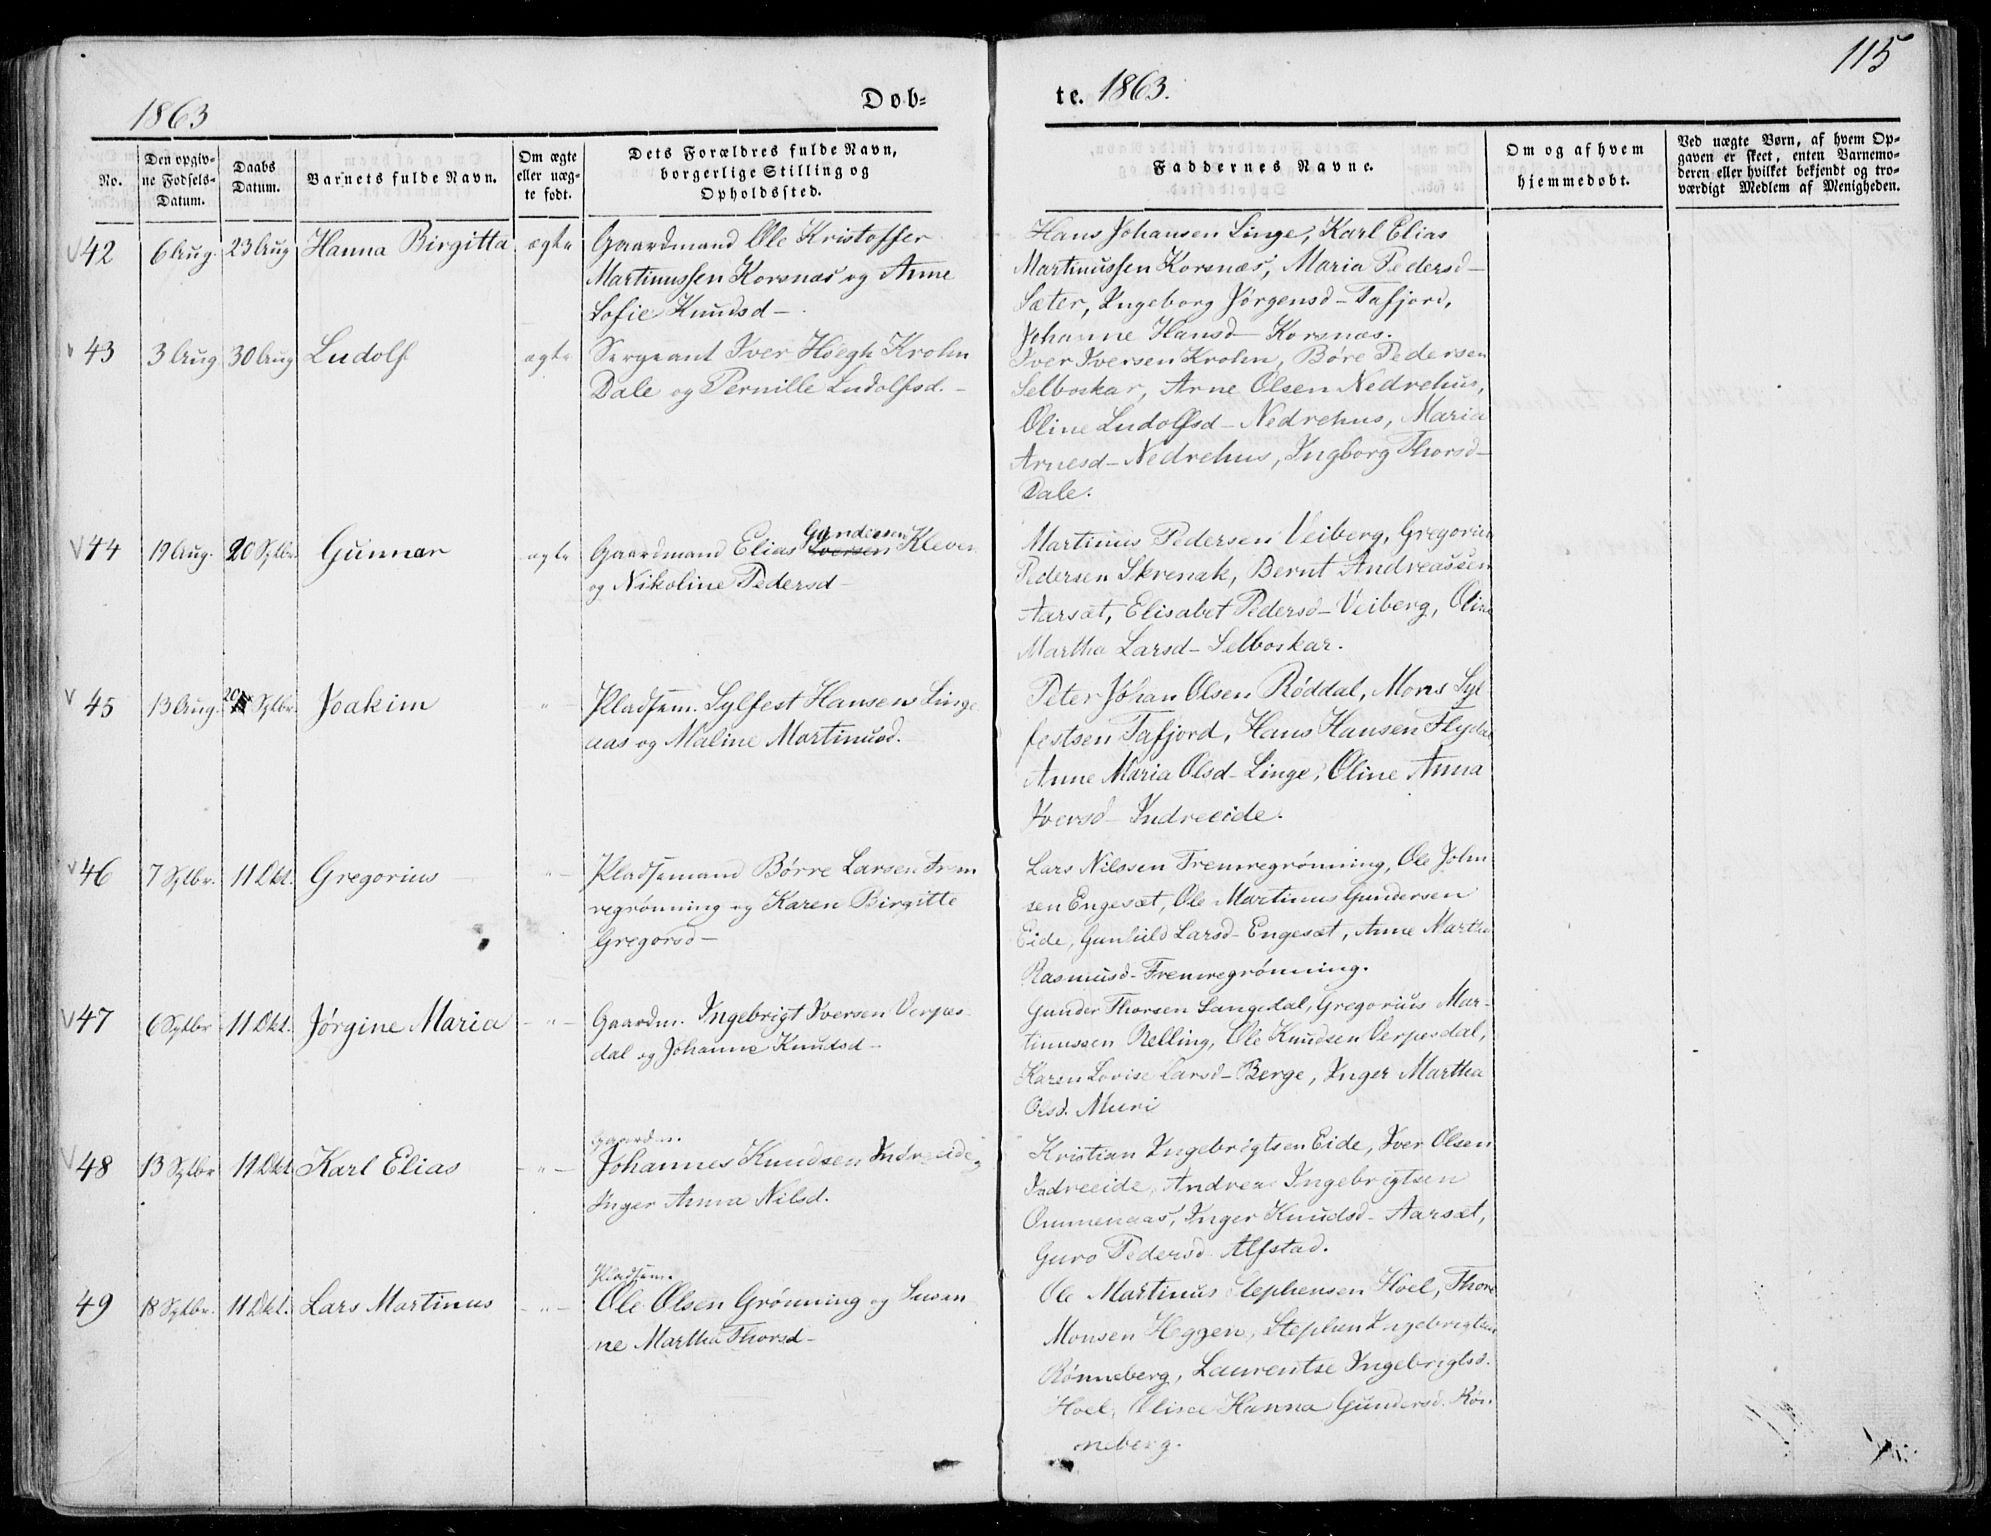 115
1863
Dob=
te. 1863.
No.
Den opgiv-
ne Fodsels-
Datum.
Daabs
Datum.
Barnets fulde Navn.
Om ægte
eller uæg-
te født.
Dets Forældres fulde Navn,
borgerlige Stilling og
Opholdssted.
Faddernes Navne.
Om og af hvem
hjemmedobt.
Ved uægte Børn, af hvem Op-
gaven er skeet, enten Barnemo-
deren eller hvilket bekjendt og tro-
værdigt Medlem af Menigheden.
42 6 Aug. 23 Aug Hanna Birgitta ægte Gaardmand Ole Kristoffer
Martinussen Korsnæs og Anne
Sofie Knudsd-
Hans Johansen Linge, Karl Elias
Martinussen Korsnæs, Maria Pedersd-
Sæter, Ingeborg Jørgensd- Tafjord,
Johanne Hansd- Korsnæs.
43 3 Aug 30 Aug Ludolf ægte Sergeant Iver Høegh Krohn
Dale og Pernille Ludolfsd.-
Iver Iversen Krohn, Børe Pedersen
Selboskar, Arne Olsen Nedrehus,
Oline Ludolfsd- Nedrehus, Maria
Arnesd- Nedrehus, Ingborg Thorsd-
Dale.
44 19 Aug. 20 Sptbr. Gunnar ægte Gaardmand Elias Iversen Gundersen Kleven
og Nikoline Pedersd-
Martinus Pedersen Veiberg, Gregorius
Pedersen Skrenak, Bernt Andreassen
Aarsæt, Elisabet Pedersd- Veiberg, Oline
Martha Larsd- Selboskar.
45 13 Aug. 20 Sptbr. Joakim -"- Pladsem. Sylfest Hansen Linge
aas og Maline Martinusd.
Peter Johan Olsen Røddal, Mons Syl
festsen Tafjord, Hans Hansen Flydal
Anne Maria Olsd- Linge, Oline Anna
Iversd- Indreeide.
46 7 Sptbr. 11 Okt. Gregorius -"- Pladsemand Børre Larsen Frem
regrønning og Karen Birgitte
Gregorsd-
Lars Nilssen Fremregrønning, Ole John
sen Engesæt, Ole Martinus Gundersen
Eide, Gunhild Larsd- Engesæt, Anne Martha
Rasmusd- Fremregrønning.
47 6 Sptbr 11 Okt. Jørgine Maria -"- Gaardm. Ingebrigt Iversen Verpes
dal og Johanne Knudsd-
Gunder Thorsen Langedal, Gregorius Mar-
tinussen Relling, Ole Knudsen Verpesdal,
Karen Lovise Larsd- Berge, Inger Martha
Olsd. Muri
48 13 Sptbr 11 Okt Karl Elias -"- Gaardm.
Johannes Knudsen Indreeide,
Inger Anna Nilsd.
Kristian Ingebrigtsen Eide, Iver Olsen
Indreeide, Andreas Ingebrigtsen
Ommenaas, Inger Knudsd- Aarsæt,
Guro Pedersd- Alfstad.
49 18 Sptbr. 11 Okt. Lars Martinus -"- Pladsem.
Ole Olsen Grønning og Susan
ne Martha Thorsd-
Ole Martinus Stephensen Hoel, Thore
Monsen Heggen, Stephen Ingebrigtsen
Rønneberg, Laurentse Ingebrigtsd.
Hoel, Olise Hanna Gundersd. Røn
neberg.